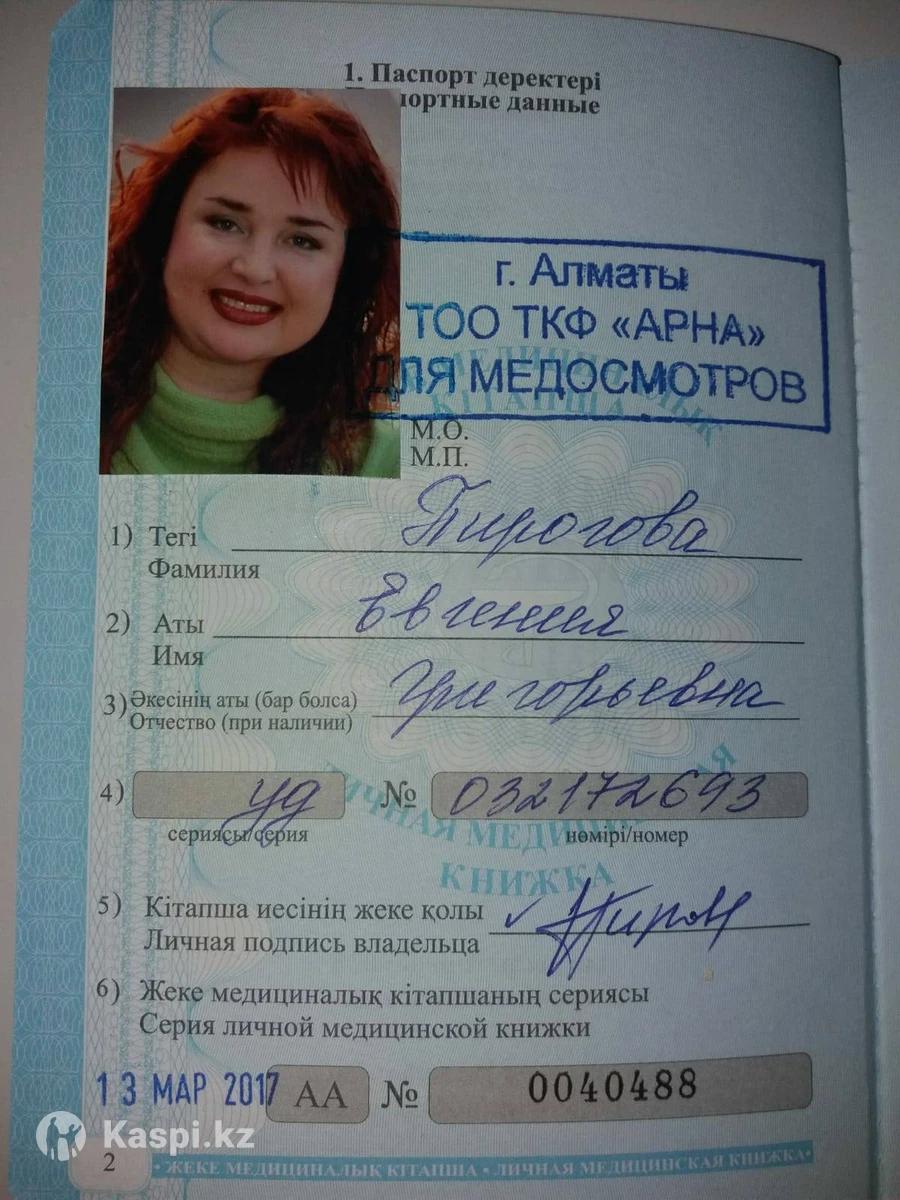 1. Паспорт деректері
Паспортные данные
г. Алматы
ТОО ТКФ «АРНА»
ДЛЯ МЕДОСМОТРОВ
М.О.
М.П.
1) Тегі Пирогова
Фамилия
2) Аты Евгения
Имя
3) Әкесінің аты (бар болса) Григорьевна
Отчество (при наличии)
4) уд № 032172693
сериясы/серия нөмірі/номер
ЛИЧНАЯ МЕДИЦИНСКАЯ
КНИЖКА
5) Кітапша иесінің жеке қолы
Личная подпись владельца
6) Жеке медициналық кітапшаның сериясы
Серия личной медицинской книжки
13 МАР 2017 АА № 0040488
Kaspi.kz
2 • ЖЕКЕ МЕДИЦИНАЛЫҚ КІТАПША • ЛИЧНАЯ МЕДИЦИНСКАЯ КНИЖКА•